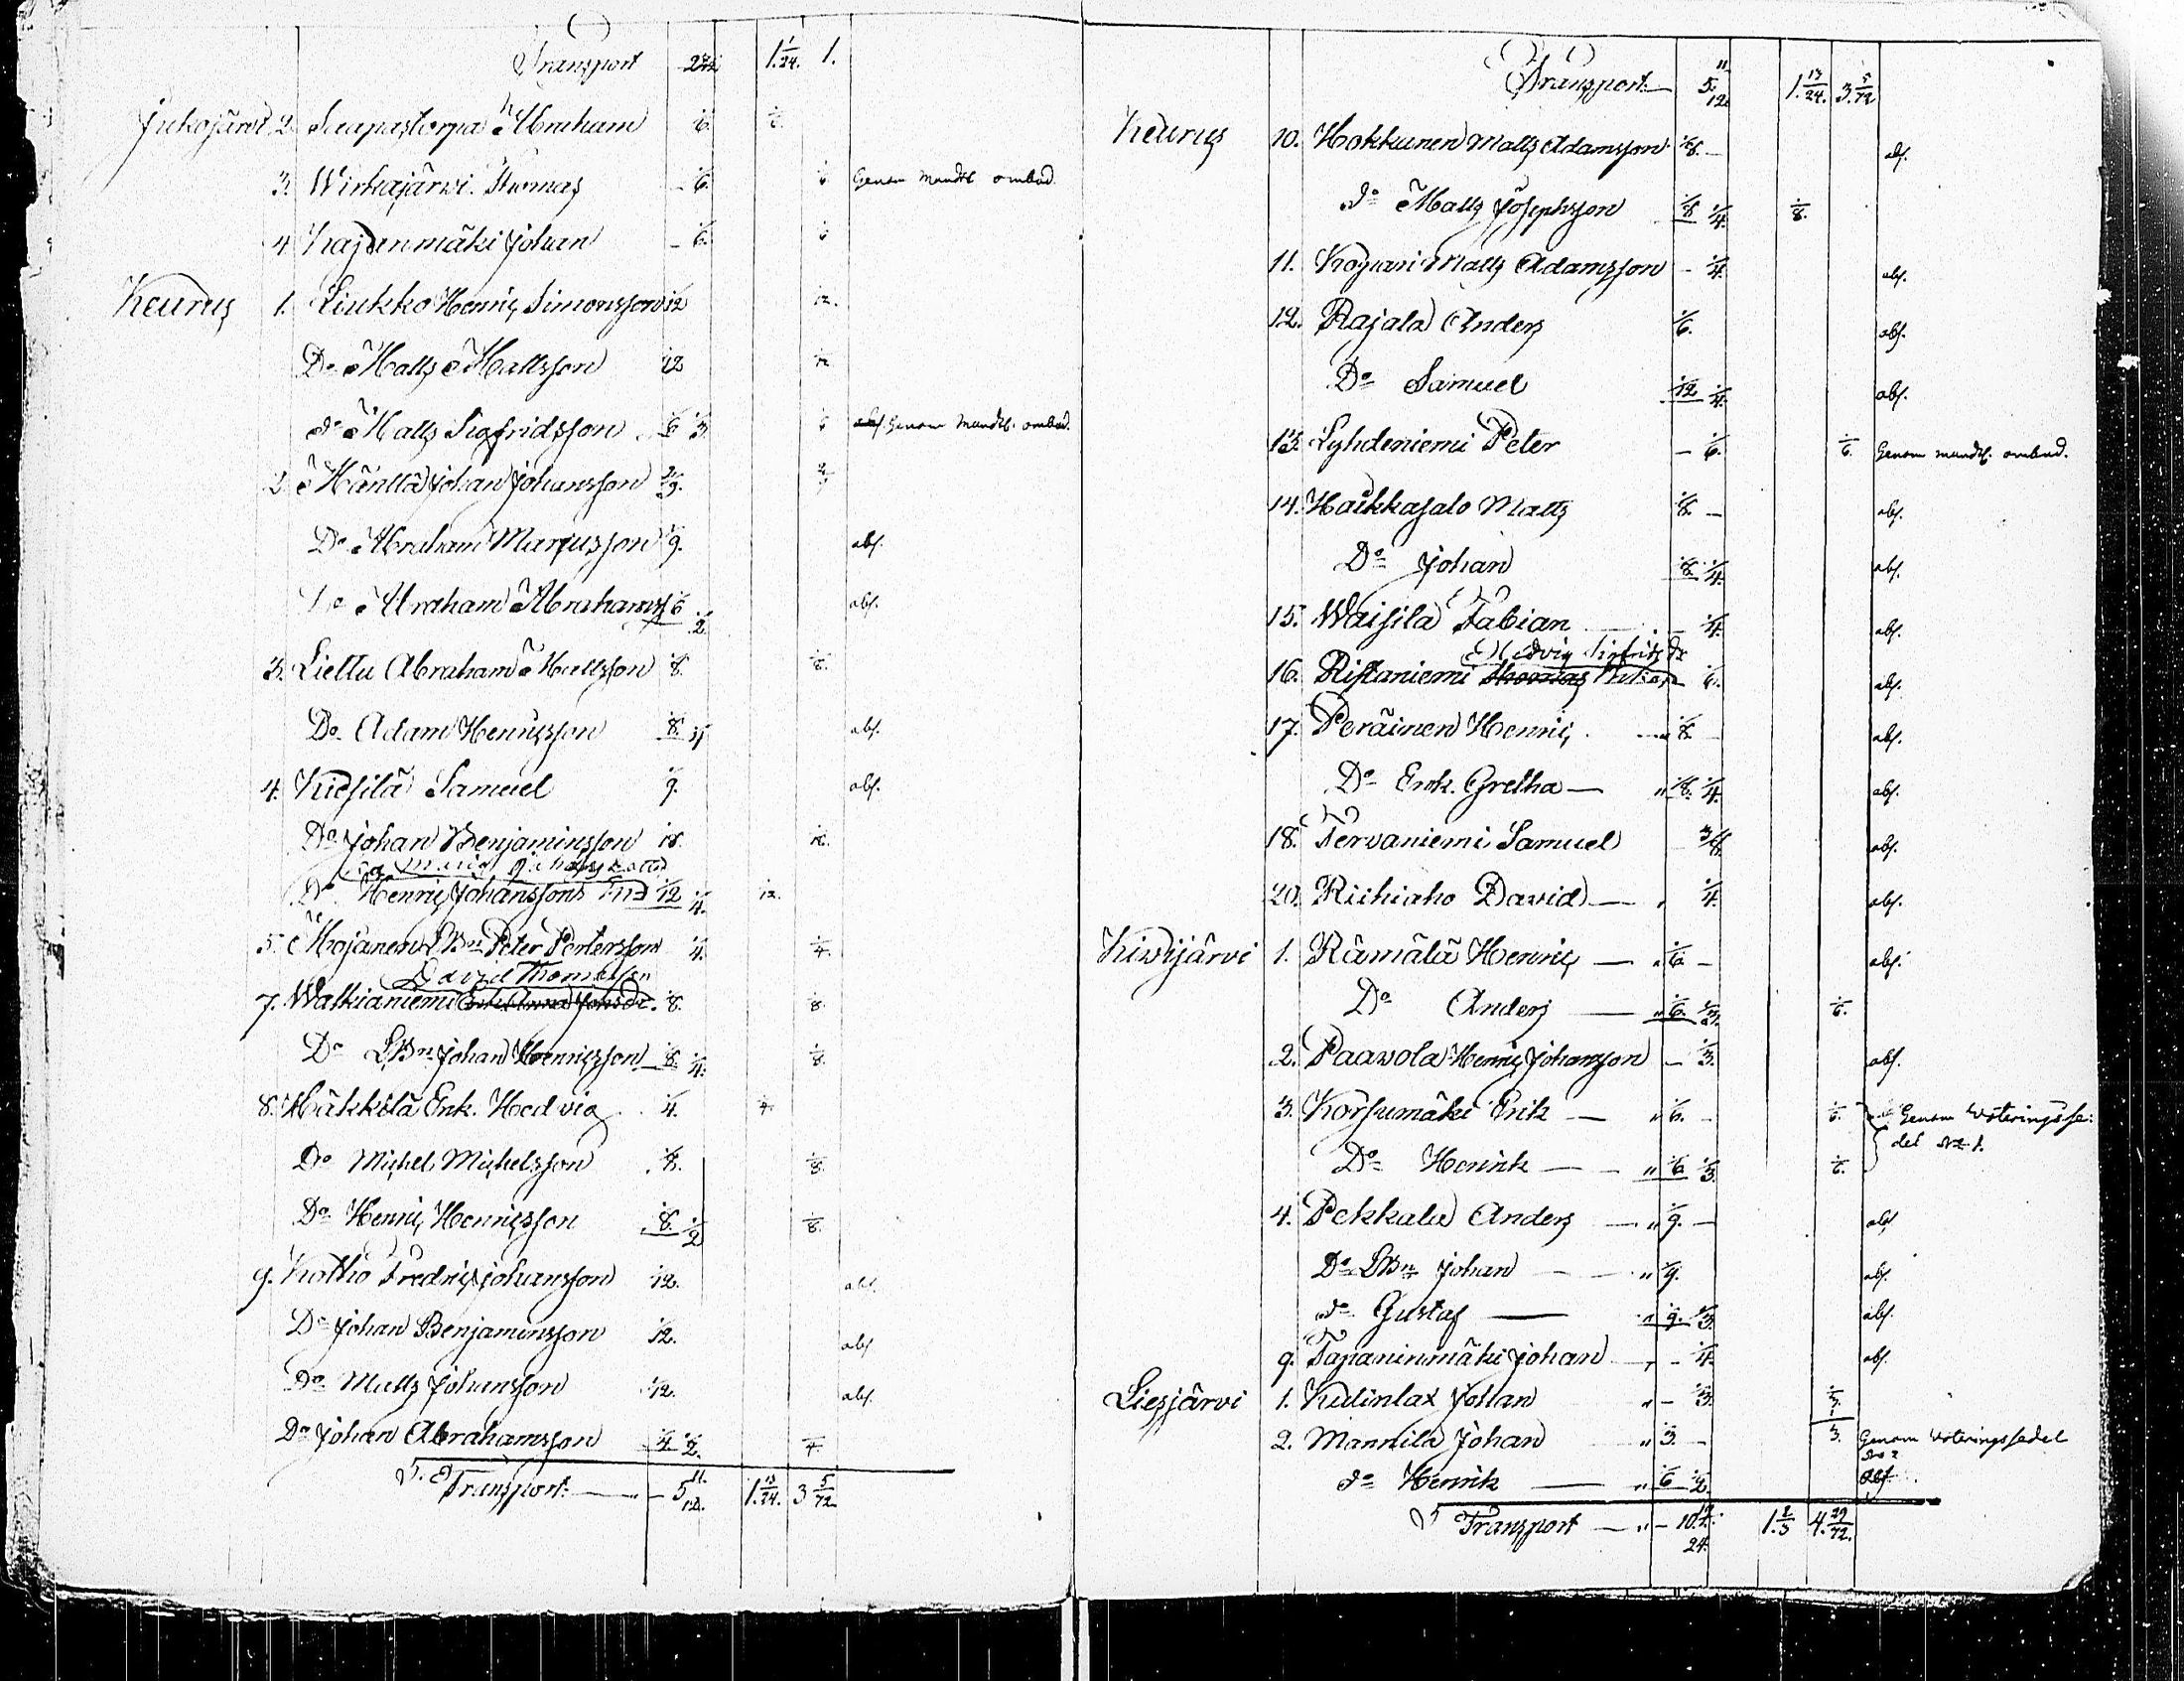 Transport 1 1/24. 1.
Jukojärvi 2. Saapastorpa Abraham 1/6. 1/6.
3. Wirkajärwi Thomas - 1/6. 1/6 Genom Mundtl. ombud.
4. Kajanmäki Johan - 1/6. 1/6
Keurus 1. Liukko Henric Simonsson 1/12 1/12.
Do Matts Mattsson 1/12 1/12
do Matts Sigfridsson 1/6 1/3. 1/6 Genom Mundtl. ombud.
2. Mänttä Johan Johansson 2/9. 2/9
Do Abraham Marcusson 1/9. abs.
Do Abraham Abrahams 1/6 1/2. abs.
3. Liettu Abraham Mattsson 1/8. 1/8.
Do Adam Henricsson 1/8. 1/4 abs.
4. Kiesilä Samuel 1/9. abs.
Do Johan Benjaminsson 1/18. 1/18.
Do Henric Johanssons 1/12 1/4. 1/12.
5. Mojanen LBn Peter Pettersson 1/4. 1/4.
David Thomasson
7. Walkianiemi 1/8. 1/8.
Do LBn Johan Henricsson 1/8. 1/4. 1/8.
8. Häkkilä Enk. Hedvig 1/4. 1/4.
Do Michel Michelsson 1/8. 1/8.
Do Henric Henricsson 1/8. 1/2 1/8.
9. Kotho Fredric Johansson 1/12. abs.
Do Johan Benjaminsson 1/12. abs
Do Matts Johansson 1/12. abs.
Do Johan Abrahamsson 1/4 1/2. 1/4.
Transport - 5 11/12. 1 13/24. 3 5/72.
Transport 5 11/12. 1 13/24. 3 5/72
Keurus 10. Hokkunen Matts Adamsson 1/8. - abs.
do Matts Josephsson 1/8 1/4. 1/8.
11. Kojuri Matts Adamsson - 1/4. abs.
12. Rajala Anders 1/6. abs.
Do Samuel 1/12 1/4. abs.
13. Lyhdeniemi Peter - 1/6. 1/6. Genom mundtl. ombud.
14. Haikkasalo Matts 1/8. - abs.
Do Johan 1/8 1/4. abs.
15. Waisilä Fabian 1/4. abs.
Hedvig Sigfrids Dr
16. Ristaniemi Thomas 1/6. abs.
17. Peräinen Henric 1/8. abs.
Do Enk. Gretha — 1/8. 1/4. abs.
18. Tervaniemi Samuel abs.
20. Riihiaho David — 1/4. abs.
Kiwijärvi 1. Rämälä Henric — 1/6. - abs.
Do Anders — 1/6. 1/3. 1/6.
2. Paavola Henric Johansson - 1/3. abs.
3. Korsumäki Erik — 1/6. - 1/6. Genom Woteringsse-
del No 1.
Do Henrik — 1/6 1/3. 1/6.
4. Pekkala Anders — 1/9. - abs
Do LBn Johan 1/9. abs.
do Gustaf — 1/9. 1/3. abs.
9. Tapaninmäki Johan - 1/4. abs.
Liesjärvi 1. Kulinlax Johan - 1/3. 1/3.
2. Mannila Johan 1/3. - 1/3. Genom Woteringssedel
No 2
do Henrik — 1/6 1/2. abs.
Transport - 10. 1 2/3 4. 29/72.